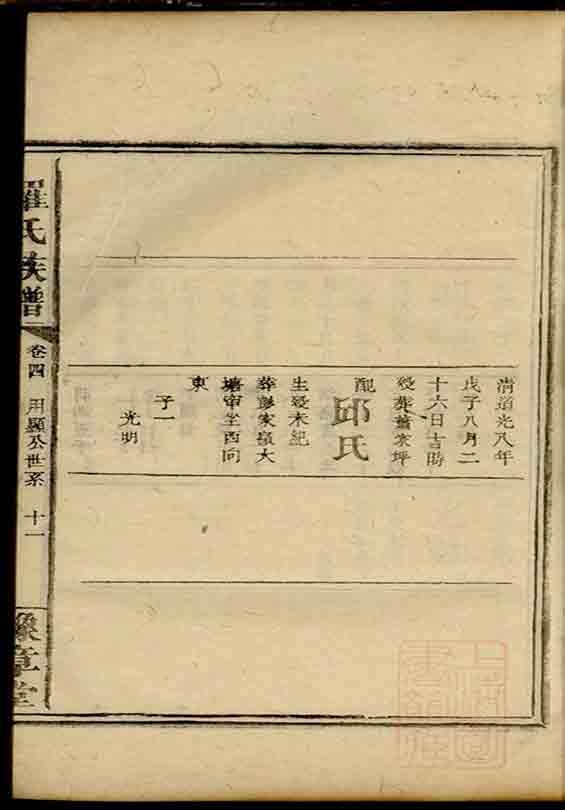 清道光八年
戊子八月二
十六日吉時
歿葬蕭家坪
配
邱氏
生歿未紀
葬彭家嶺大
塘甯坐西向
東
子一
光明
羅氏族譜
卷四
用顯公世系
十一
豫章堂